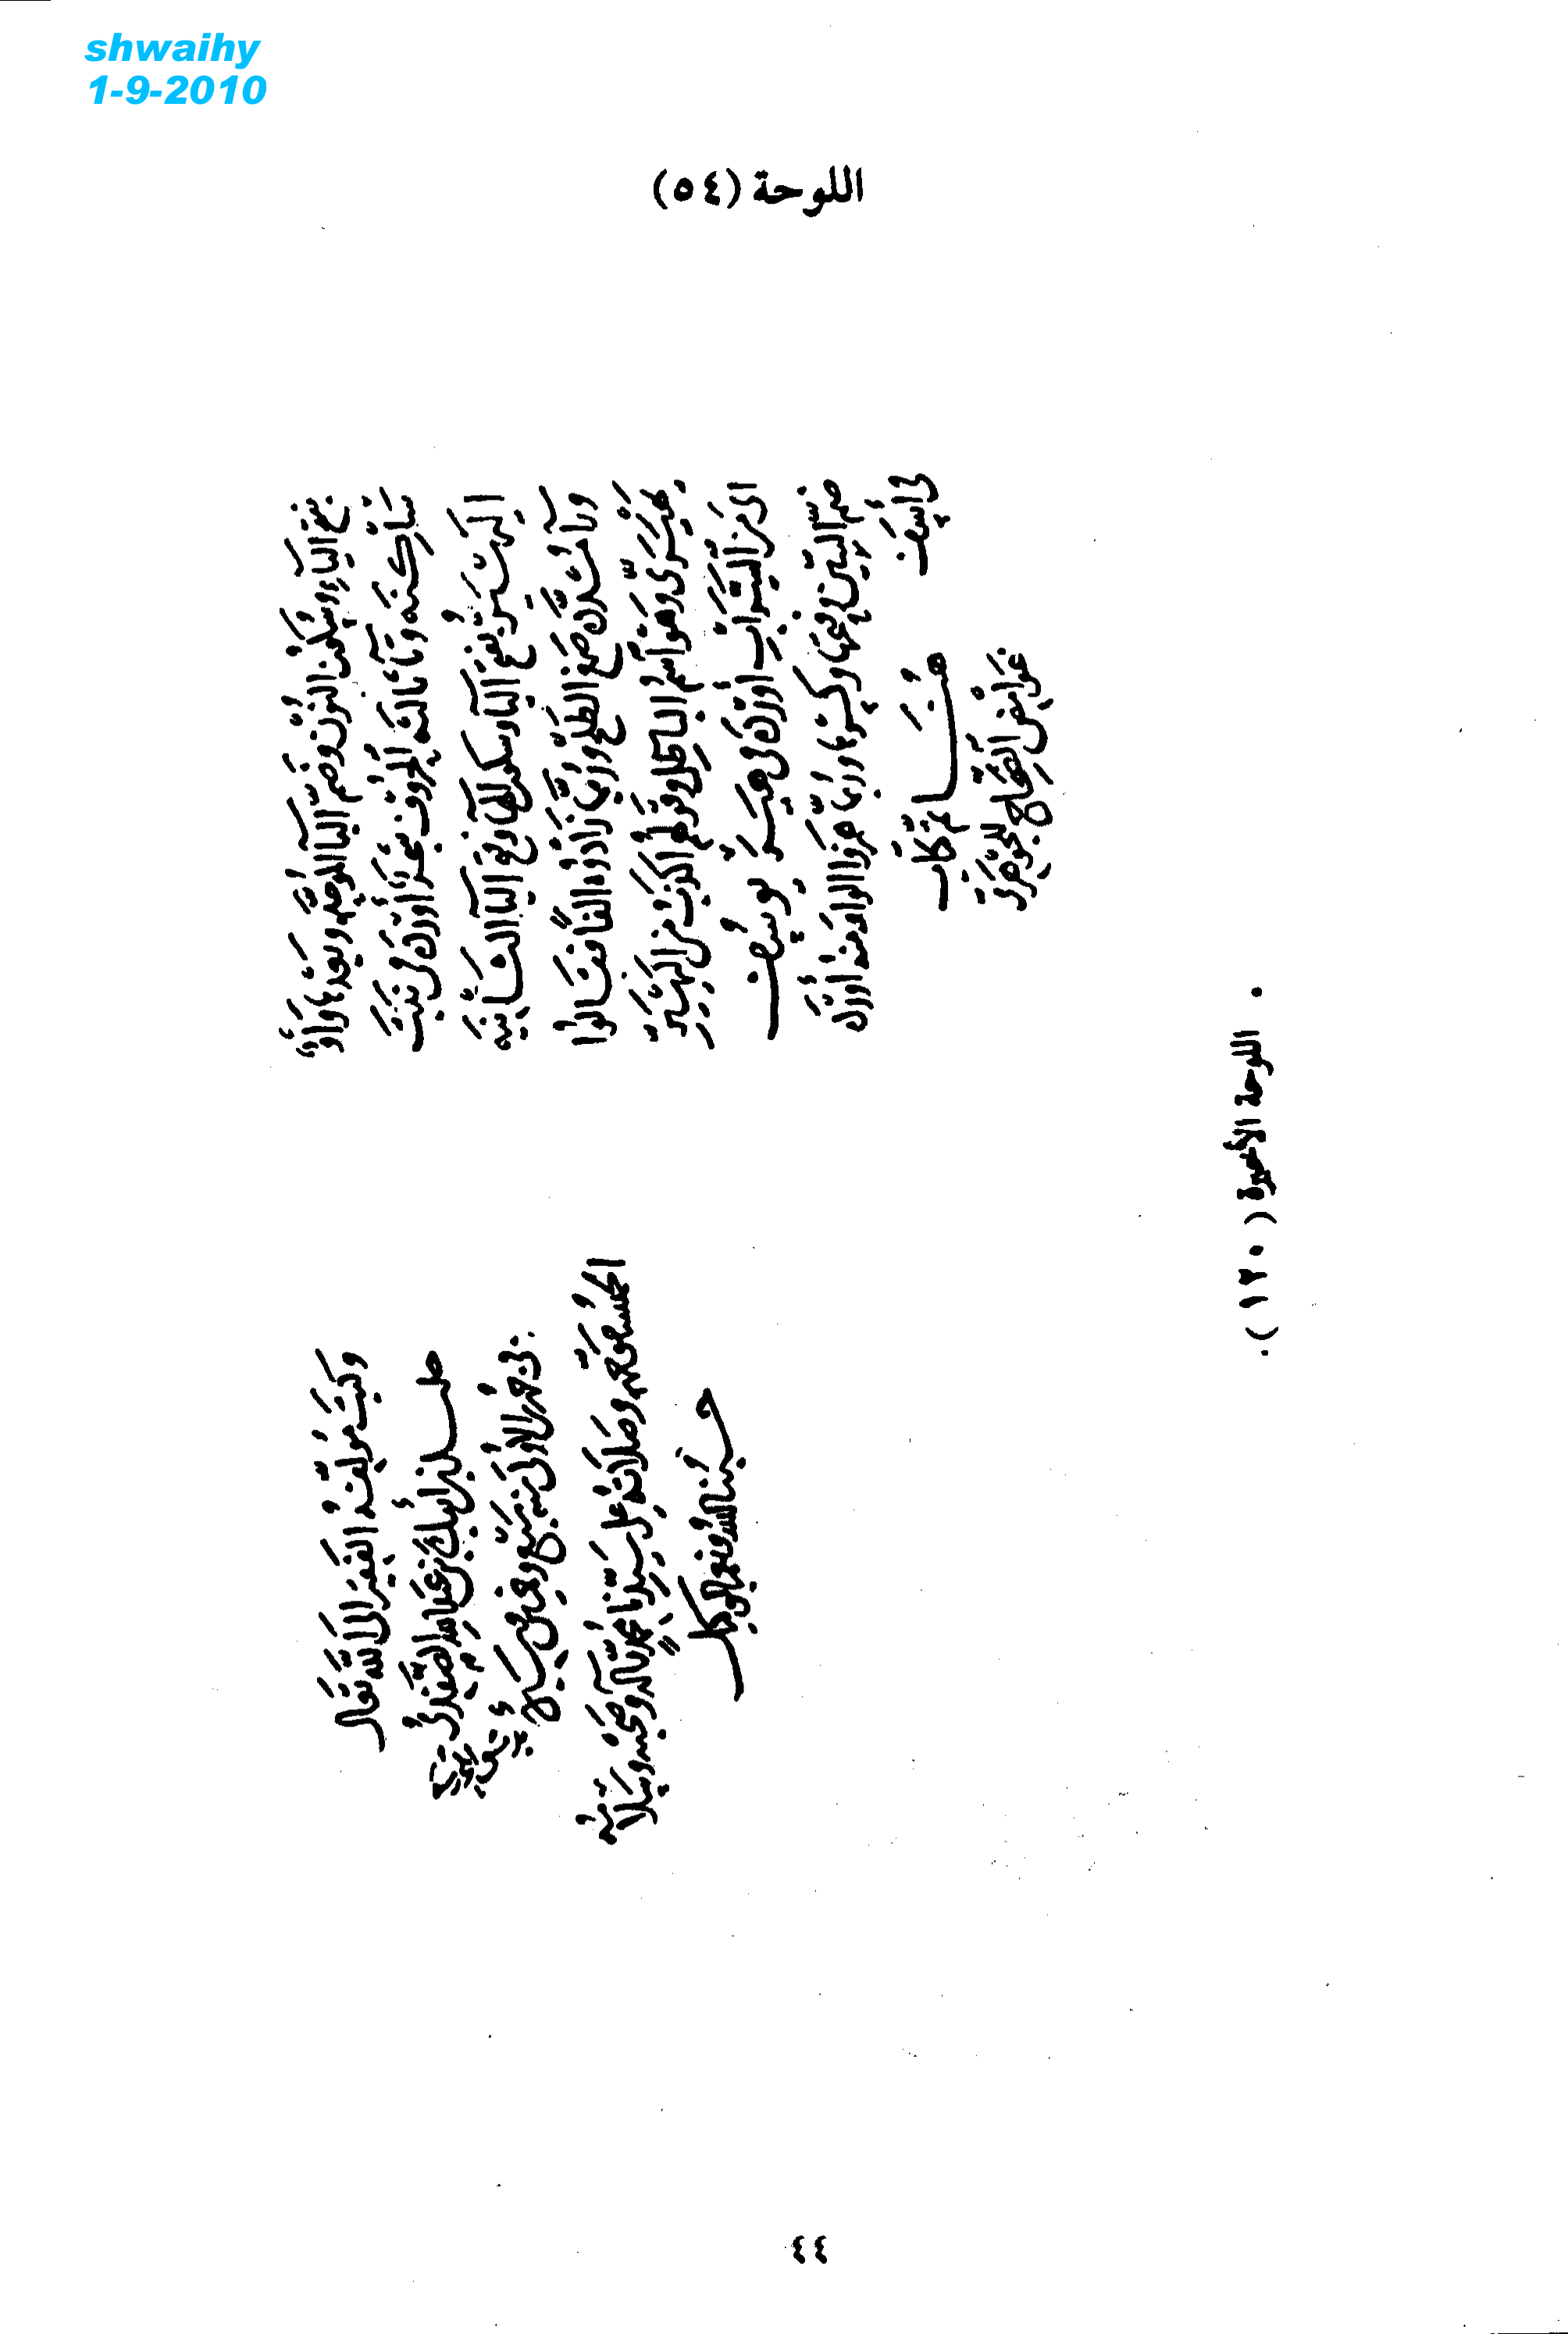 shwaihy
1-9-2010
اللوحة (٥٤)
بفتح الياء وسكون النون وضم الباء الموحدة وبعدها واو
ساكنة وتاء ثالثة الحروف نبت
اليهير بفتح الياء وسكون الهاء وفتح الياء الثانية
وراء مشددة صمغ الطلح وربما زادوا الفا فقالوا
يهيرى وهو اسم الباطل وقولهم اكذب من اليهير
الى من السراب اورده في هير يوسف
ضم السين وفتحها وكسرها وربما همزوا الواو منه اورده
في اسف
هنا تم كتاب
غوامض الصحاح للجوهري
وكتب مؤلفه الفقير الى الله تعالى
خليل بن أيبك بن عبد الله الصفدي
في جمادى الاولى سنة سبع وخمسين وسبع مائة
الحمد لله حق حمده وصلاته على سيدنا محمد وآله وصحبه وسلامه
حسبنا الله ونعم الوكيل
• اللوحة الأخيرة (١٢٠).
٤٤